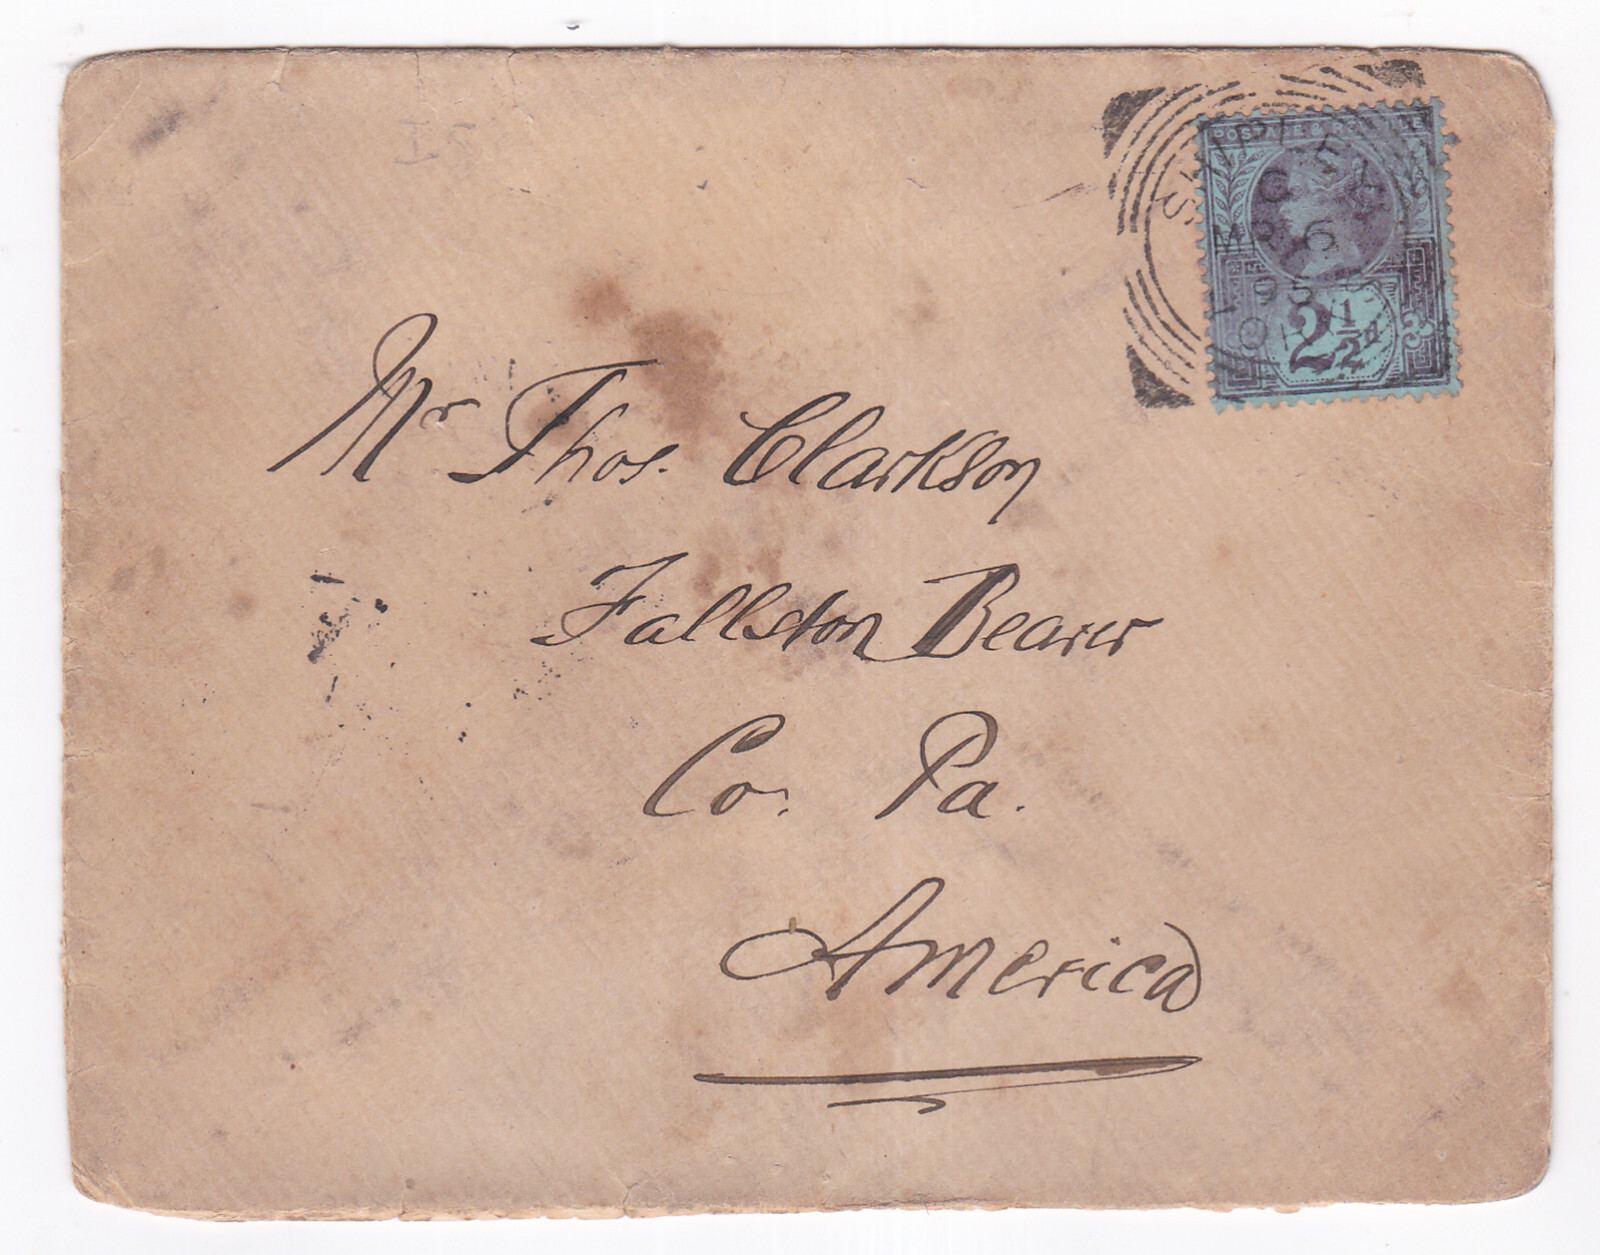 POSTAGE & REVENUE
SHIPLEY
C
MR 6
95
2½d
Mr Thos. Clarkson
Fallston Beaver
Co. Pa.
America